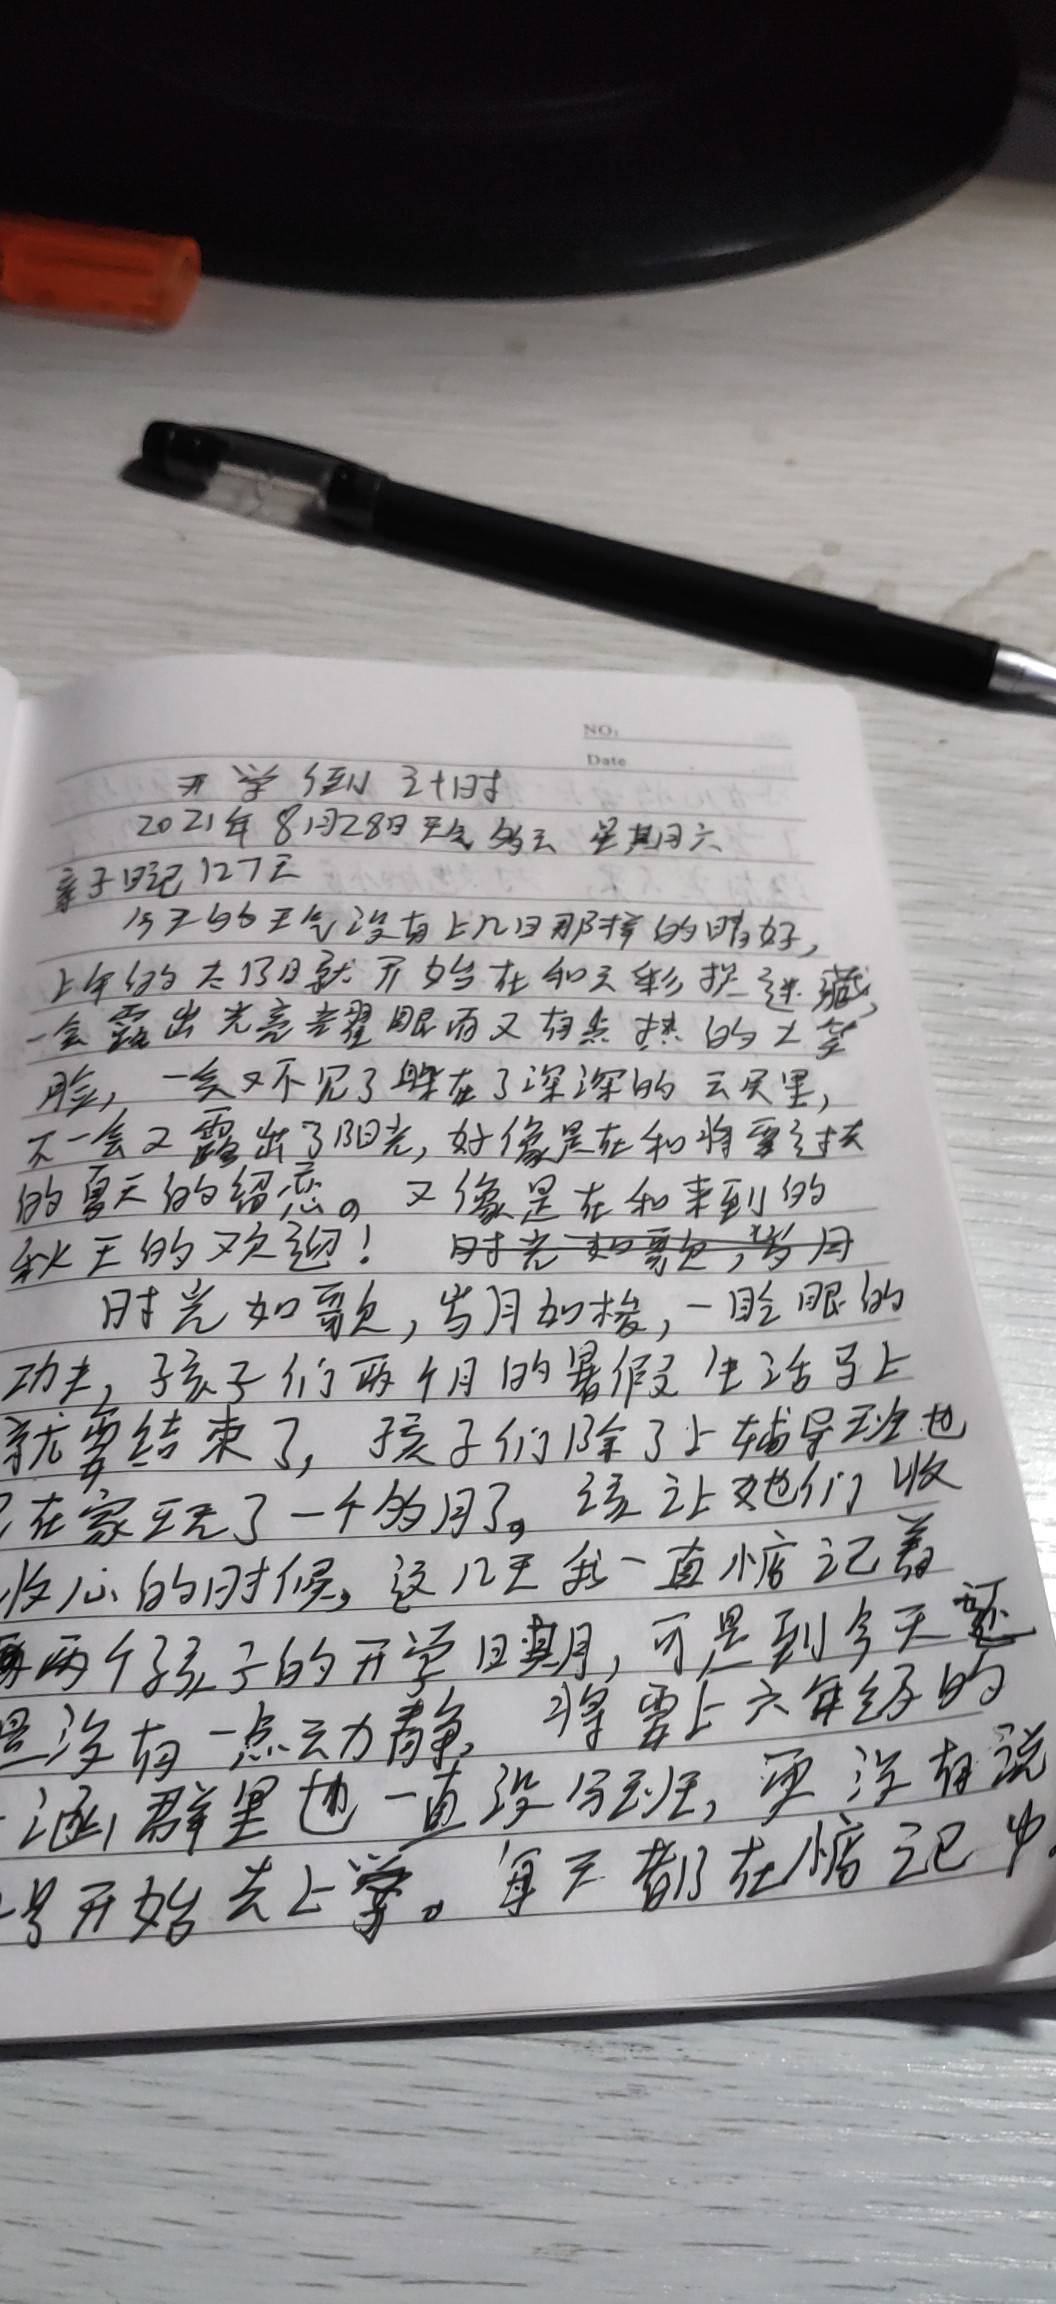 NO:
Date
开学倒计时
2021年8月28日天气多云 星期六
亲子日记127天
今天的天气没有上几日那样的晴好，
上午的太阳就开始在和云彩捉迷藏，
一会露出光亮耀眼而又有点热的大笑
脸，一会又不见了躲在了深深的云层里，
不一会又露出了阳光，好像是在和将要过去
的夏天的留恋。又像是在和来到的
秋天的欢迎！时光如歌，岁月
时光如歌，岁月如梭，一眨眼的
功夫，孩子们两个月的暑假生活马上
就要结束了，孩子们除了上辅导班也
在家玩了一个多月了。该让她们收
收心的时候。这几天我一直惦记着
两个孩子的开学日期，可是到今天
是没有一点动静，将要上六年级的
一涵群里也一直没分班，更没有说
号开始去上学。每天都在惦记中。